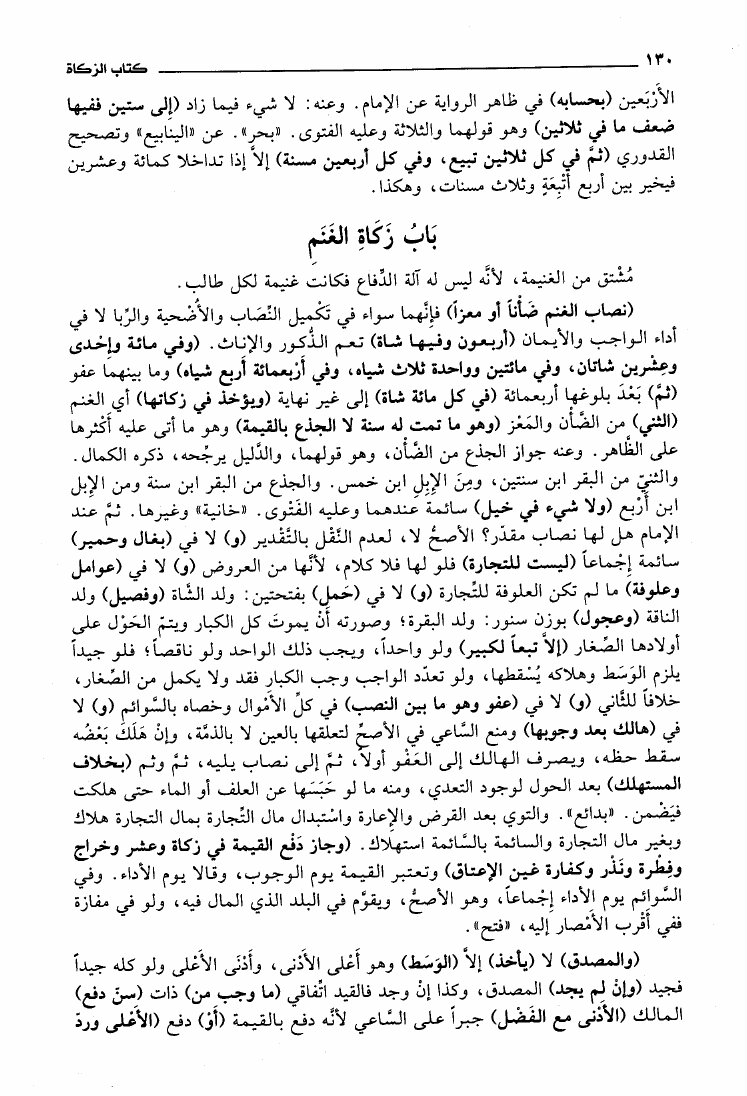 ١٣٠ كتاب الزكاة
الأَرْبَعين (بحسابه) في ظاهر الرواية عن الإمام. وعنه: لا شيء فيما زاد (إلى ستين ففيها
ضعف ما في ثلاثين) وهو قولهما والثلاثة وعليه الفتوى. «بحر». عن «الينابيع» وتصحيح
القدوري (ثمَّ في كل ثلاثين تبيع، وفي كل أربعين مسنة) إلاَّ إذا تداخلا كمائة وعشرين
فيخير بين أربع أَتْبِعَةٍ وثلاث مسنات، وهكذا.
بَابُ زَكَاةِ الغَنَمِ
مُشْتق من الغنيمة، لأنَّه ليس له آلة الدِّفاع فكانت غنيمة لكل طالب.
(نصاب الغنم ضَأْناً أو معزاً) فإنَّهما سواء في تَكْميل النِّصَاب والأُضْحية والرِّبا لا في
أداء الواجب والأيمان (أربعون وفيها شاة) تعم الذُّكور والإناث. (وفي مائة وإحْدى
وعِشْرين شاتان، وفي مائتين وواحدة ثلاث شياه، وفي أرْبعمائة أربع شياه) وما بينهما عفو
(ثمَّ) بَعْدَ بلوغها أربعمائة (في كل مائة شاة) إلى غير نهاية (ويؤخذ في زكاتها) أي الغنم
(الثني) من الضَّأن والمَعْز (وهو ما تمت له سنة لا الجذع بالقيمة) وهو ما أتى عليه أكْثرها
على الظَّاهر. وعنه جواز الجذع من الضَّأن، وهو قولهما، والدَّليل يرجِّحه، ذكره الكمال.
والثنيّ من البقر ابن سنتين، ومِنَ الإبلِ ابن خمس. والجذع من البقر ابن سنة ومن الإبل
ابن أَرْبع (ولا شيء في خيل) سائمة عندهما وعليه الفَتْوى. «خانية» وغيرها. ثمَّ عند
الإمام هل لها نصاب مقدّر؟ الأصحُّ لا، لعدم النَّقْل بالتَّقْدير (و) لا في (بغال وحمير)
سائمة إجْماعاً (ليست للتجارة) فلو لها فلا كلام، لأنَّها من العروض (و) لا في (عوامل
وعلوفة) ما لم تكن العلوفة للتِّجارة (و) لا في (حَمل) بفتحتين: ولد الشَّاة (وفصيل) ولد
الناقة (وعجول) بوزن سنور: ولد البقرة؛ وصورته أنْ يموتَ كل الكبار ويتمّ الحَوْل على
أولادها الصِّغار (إلاَّ تبعاً لكبير) ولو واحداً، ويجب ذلك الواحد ولو ناقصاً؛ فلو جيداً
يلزم الوَسَط وهلاكه يُسْقطها، ولو تعدّد الواجب وجب الكبار فقد ولا يكمل من الصِّغار،
خلافاً للثَّاني (و) لا في (عفو وهو ما بين النصب) في كلِّ الأمْوال وخصاه بالسَّوائم (و) لا
في (هالك بعد وجوبها) ومنع السَّاعي في الأصحِّ لتعلقها بالعين لا بالذمَّة، وإنْ هَلَكَ بَعْضُه
سقط حظه، ويصرف الهالك إلى العَفْو أولاً، ثمَّ إلى نصاب يليه، ثمَّ وثم (بخلاف
المستهلك) بعد الحول لوجود التعدي، ومنه ما لو حَبَسَها عن العلف أو الماء حتى هلكت
فيَضْمن. «بدائع». والتوي بعد القرض والإعارة واسْتبدال مال التِّجارة بمال التجارة هلاك
وبغير مال التجارة والسائمة بالسَّائمة استهلاك. (وجاز دَفْع القيمة في زكاة وعشر وخراج
وفِطْرة ونَذْر وكفارة غين الإعتاق) وتعتبر القيمة يوم الوجوب، وقالا يوم الأداء. وفي
السَّوائم يوم الأداء إجْماعاً، وهو الأصحُّ، ويقوَّم في البلد الذي المال فيه، ولو في مفازة
ففي أقْرب الأمْصار إليه، «فتح».
(والمصدق) لا (يأخذ) إلاَّ (الوَسَط) وهو أَعْلى الأدْنى، وأدْنى الأعْلى ولو كله جيداً
فجيد (وإنْ لم يجد) المصدق، وكذا إنْ وجد فالقيد اتِّفاقي (ما وجب من) ذات (سنّ دفع)
المالك (الأدْنى مع الفَضْل) جبراً على السَّاعي لأنَّه دفع بالقيمة (أوْ) دفع (الأعْلى وردّ